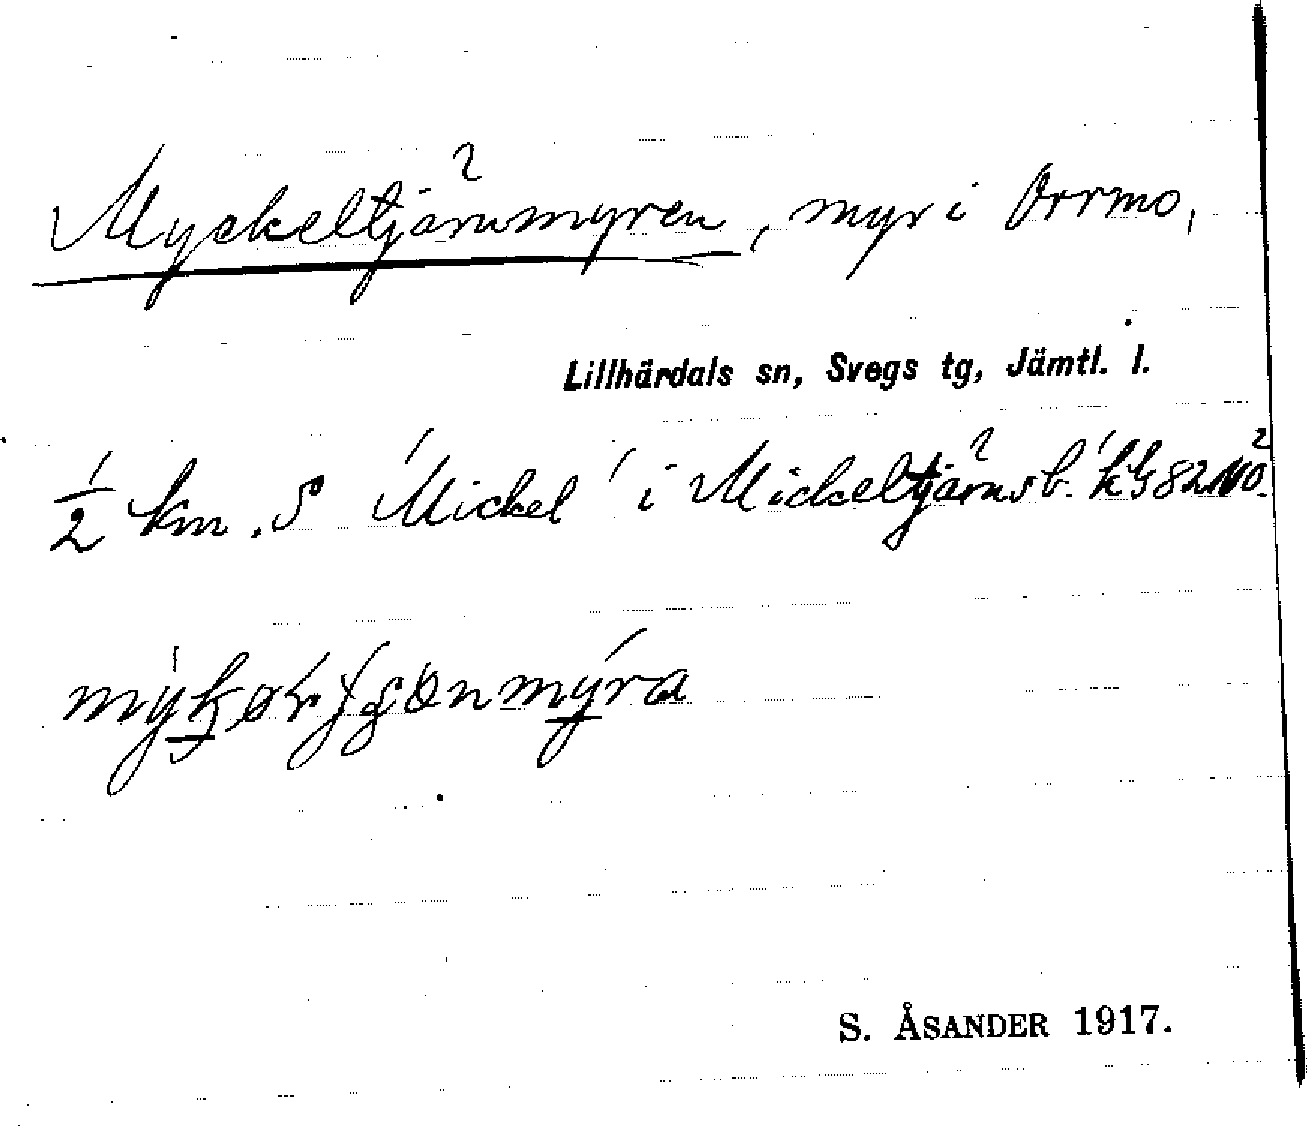 Myckeltjärnmyren, myr i Orrmo,
Lillhärdals sn, Svegs tg, Jämtl. l.
1/2 km. S Mickel i Mickeltjärnsb. kG 82
S. ÅSANDER 1917.